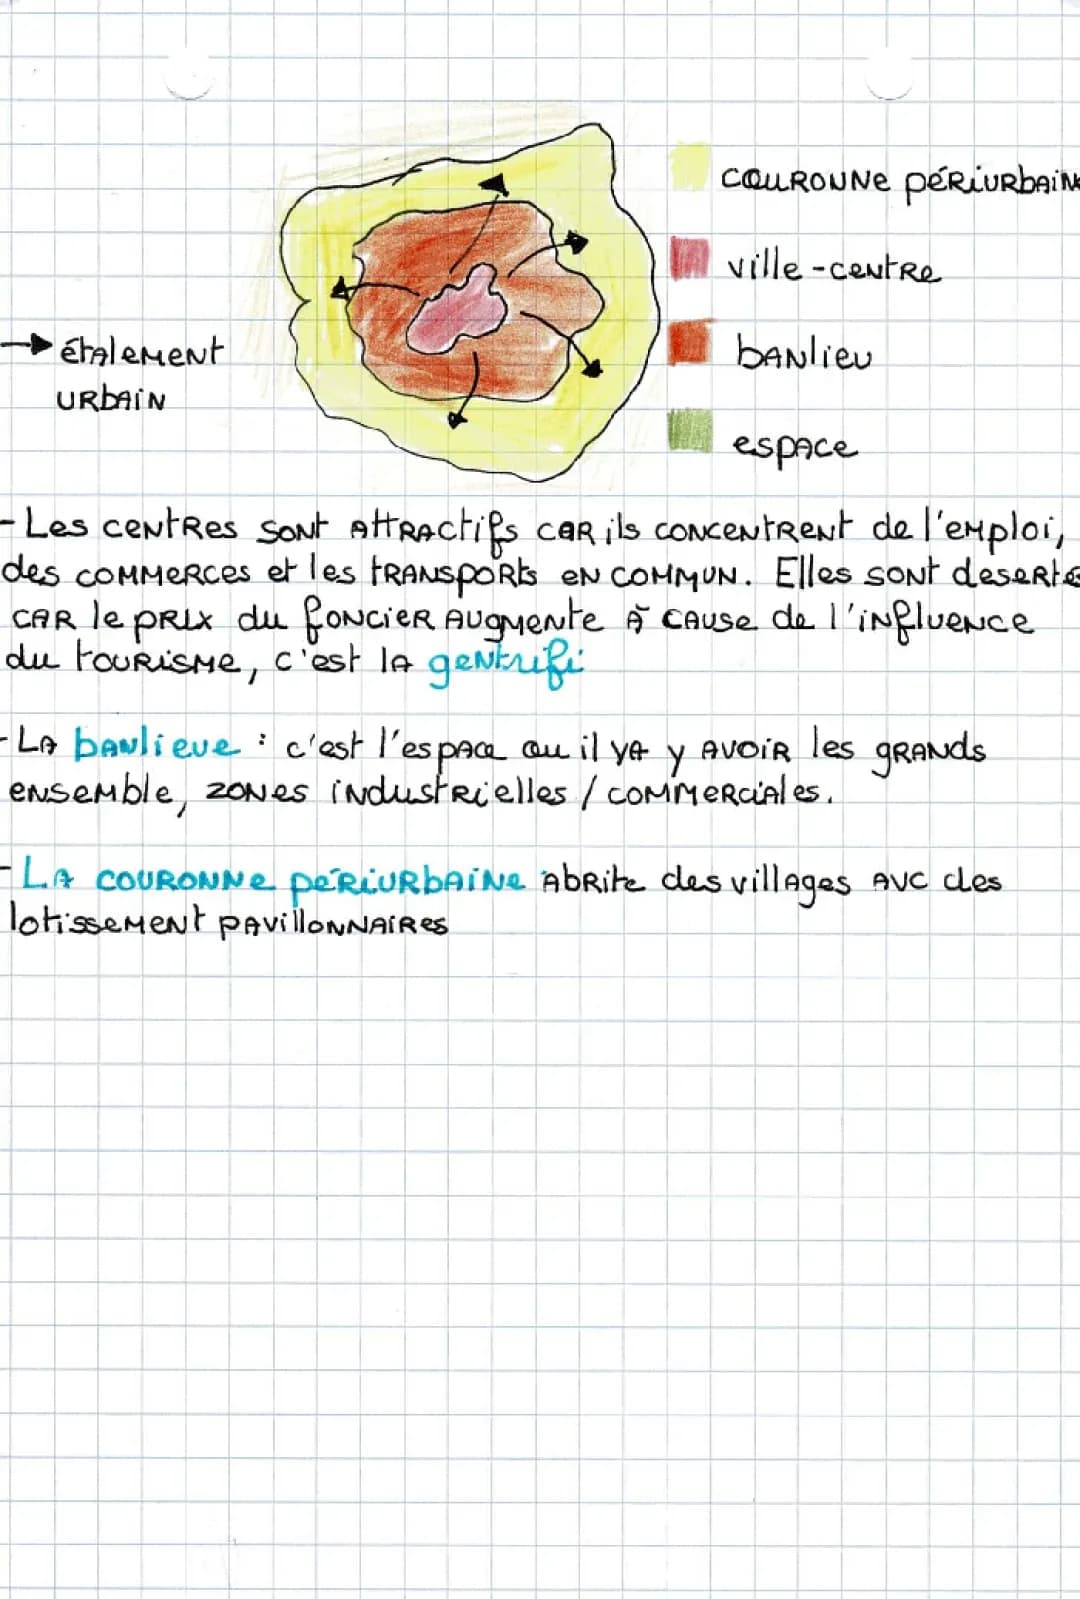 couronne périurbain
ville-centre
→ étalement
urbain
banlieu
espace
- Les centres sont attractifs car ils concentrent de l'emploi,
des commerces et les transports en commun. Elles sont deserte
car le prix du foncier augmente à cause de l'influence
du tourisme, c'est la gentrifi
- La banlieue : c'est l'espace ou il ya y avoir les grands
ensemble, zones industrielles / commerciales.
- La couronne périurbaine abrite des villages avc des
lotissement pavillonnaires